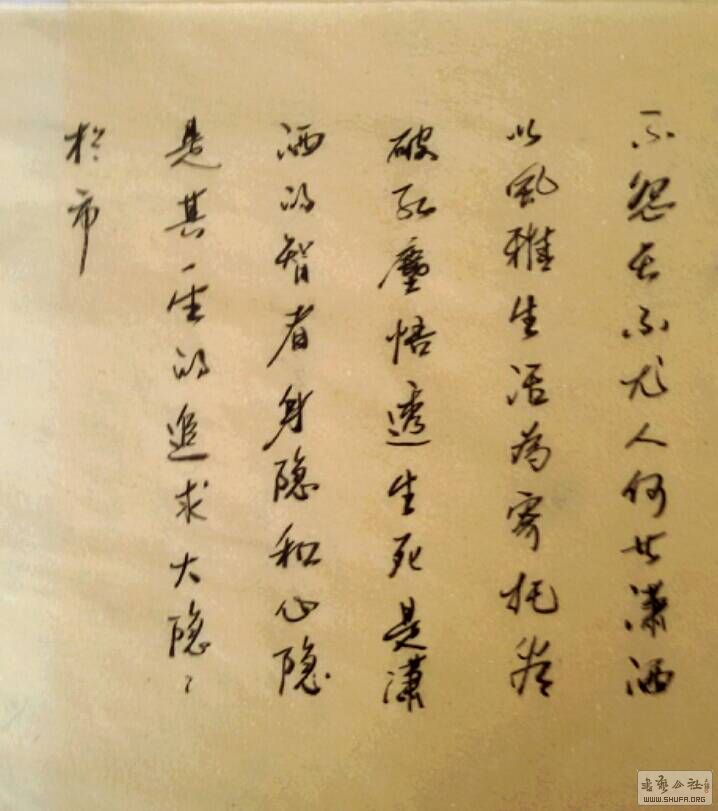 不怨天不尤人何其瀟洒
以風雅生活為寄托看
破红塵悟透生死是瀟
洒的智者身隐和心隐
是其一生的追求大隐〻
於市
書藝公社
WWW.SHUFA.ORG